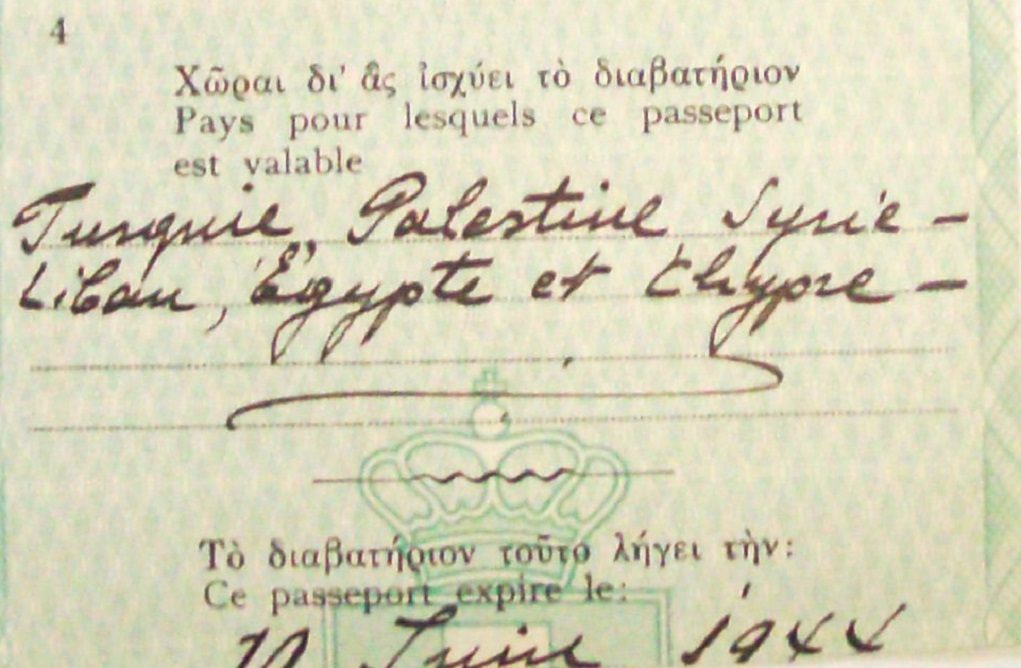 4
Χῶραι δι' ἃς ἰσχύει τὸ διαβατήριον
Pays pour lesquels ce passeport
est valable
Turquie, Palestine Syrie -
Liban, Égypte et Chypre -
Τὸ διαβατήριον τοῦτο λήγει τὴν:
Ce passeport expire le:
Juin 1944